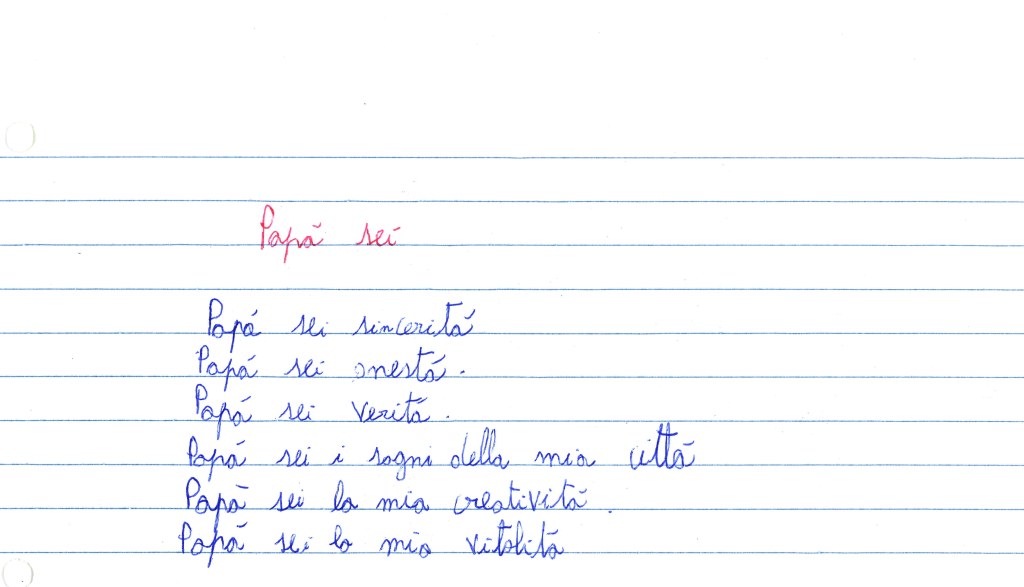 Papà sei
Papà sei sincerità
Papà sei onestà.
Papà sei verità.
Papà sei i sogni della mia città
Papà sei la mia creatività.
Papà sei la mia vitalità